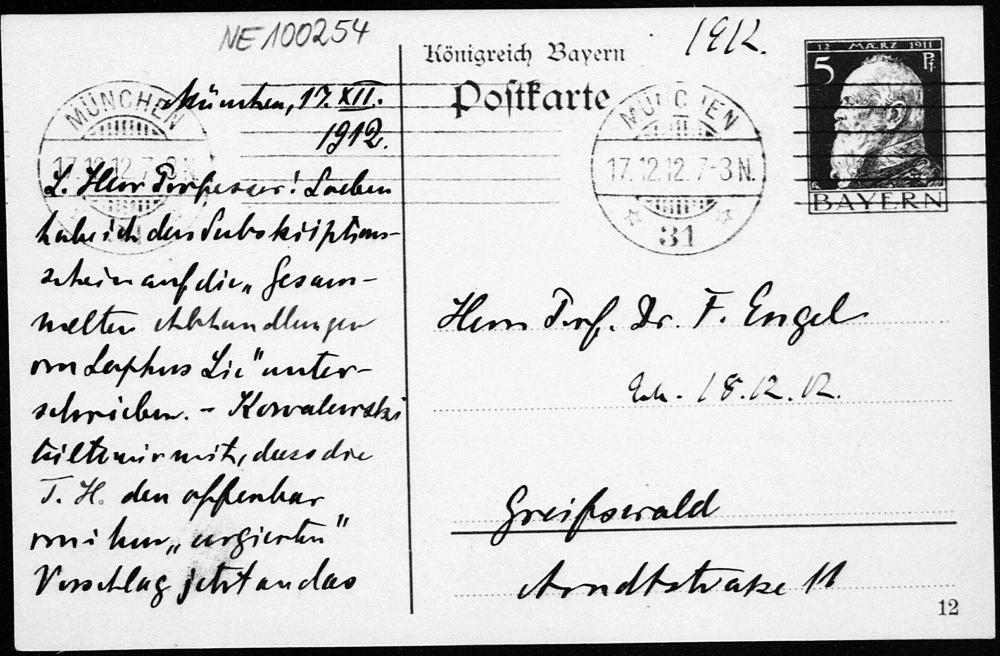 NE 100254
München, 17. XII.
1912.
L. Herr Professor! Soeben
habe ich den Subskriptions-
schein auf die „Gesam-
melten Abhandlungen
von Sophus Lie" unter-
schrieben. – Kowalewski
teilt mir mit, dass die
T. H. den offenbar
von ihm „urgierten"
Vorschlag jetzt an das
MÜNCHEN
17.12.12. 7-8 N.
Königreich Bayern
Postkarte
1912.
MÜNCHEN
17.12.12. 7-8 N.
31
12 MÆRZ 1911
5 Pf.
BAYERN
Herrn Prof. Dr. F. Engel
18.12.12.
Greifswald
Arndtstraße 11
12